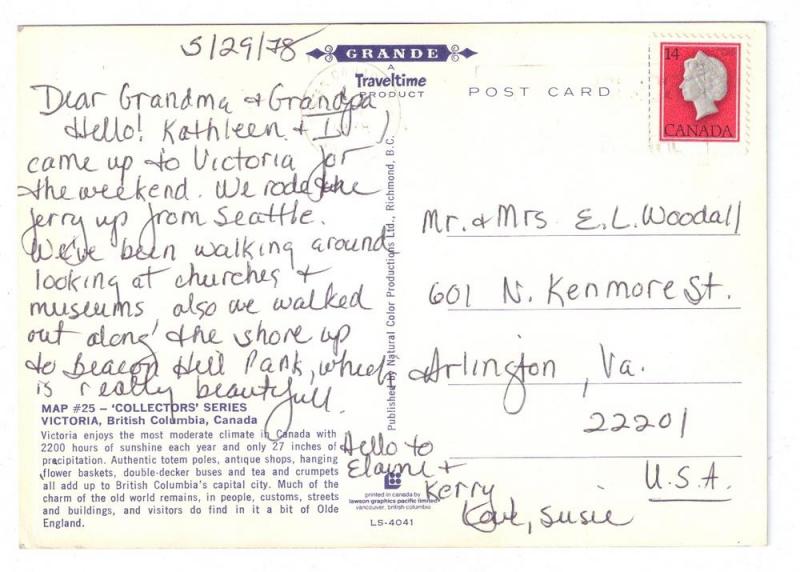 5/29/78
GRANDE
A
Traveltime
PRODUCT
POST CARD
14
CANADA
Dear Grandma & Grandpa
Hello! Kathleen & I
came up to Victoria for
the weekend. We rode the
ferry up from Seattle.
We've been walking around
looking at churches &
museums also we walked
out along the shore up
to Beacon Hill Park, which
is really beautifull.
Hello to
Elaine &
Kerry
Love, Susie
Mr. & Mrs E. L. Woodall
601 N. Kenmore St.
Arlington, Va.
22201
U.S.A.
Published by Natural Color Productions Ltd., Richmond, B.C.
MAP #25 – 'COLLECTORS' SERIES
VICTORIA, British Columbia, Canada
Victoria enjoys the most moderate climate in Canada with
2200 hours of sunshine each year and only 27 inches of
precipitation. Authentic totem poles, antique shops, hanging
flower baskets, double-decker buses and tea and crumpets
all add up to British Columbia's capital city. Much of the
charm of the old world remains, in people, customs, streets
and buildings, and visitors do find in it a bit of Olde
England.
printed in canada by
lawson graphics pacific limited
vancouver, british columbia
LS-4041